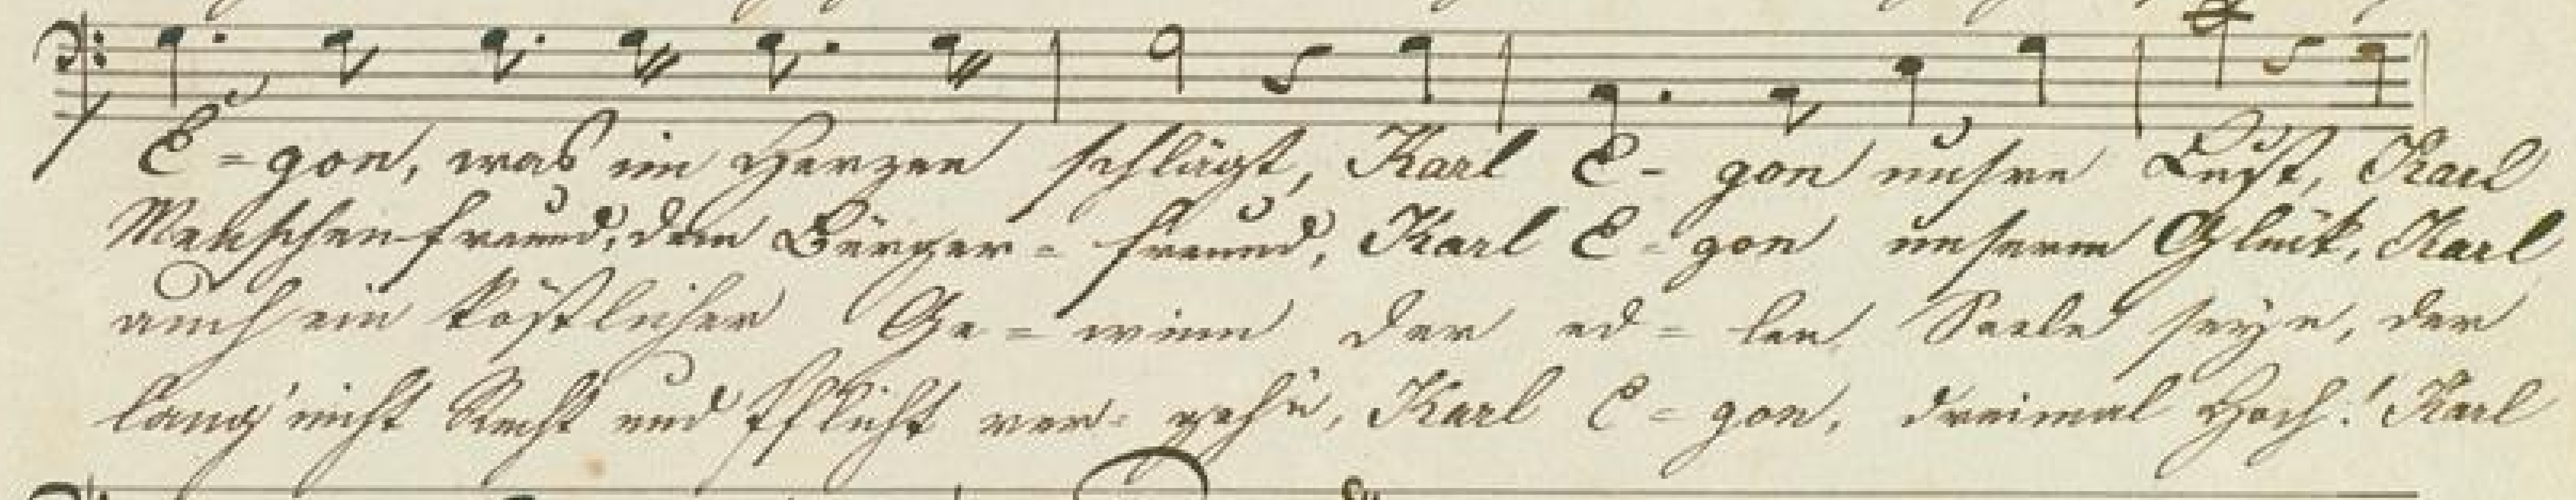 E=gon, was im Herzen schlägt, Karl E- gon unsre Lust, Karl
Menschenfreund, dem Bürger= freund, Karl E=gon unserm Glük, Karl
auch ein köstlicher Ge=winn der ed=len Seele seyn, der
lang' nicht Recht und Pflicht ver= gehn, Karl E=gon, dreimal Hoch! Karl